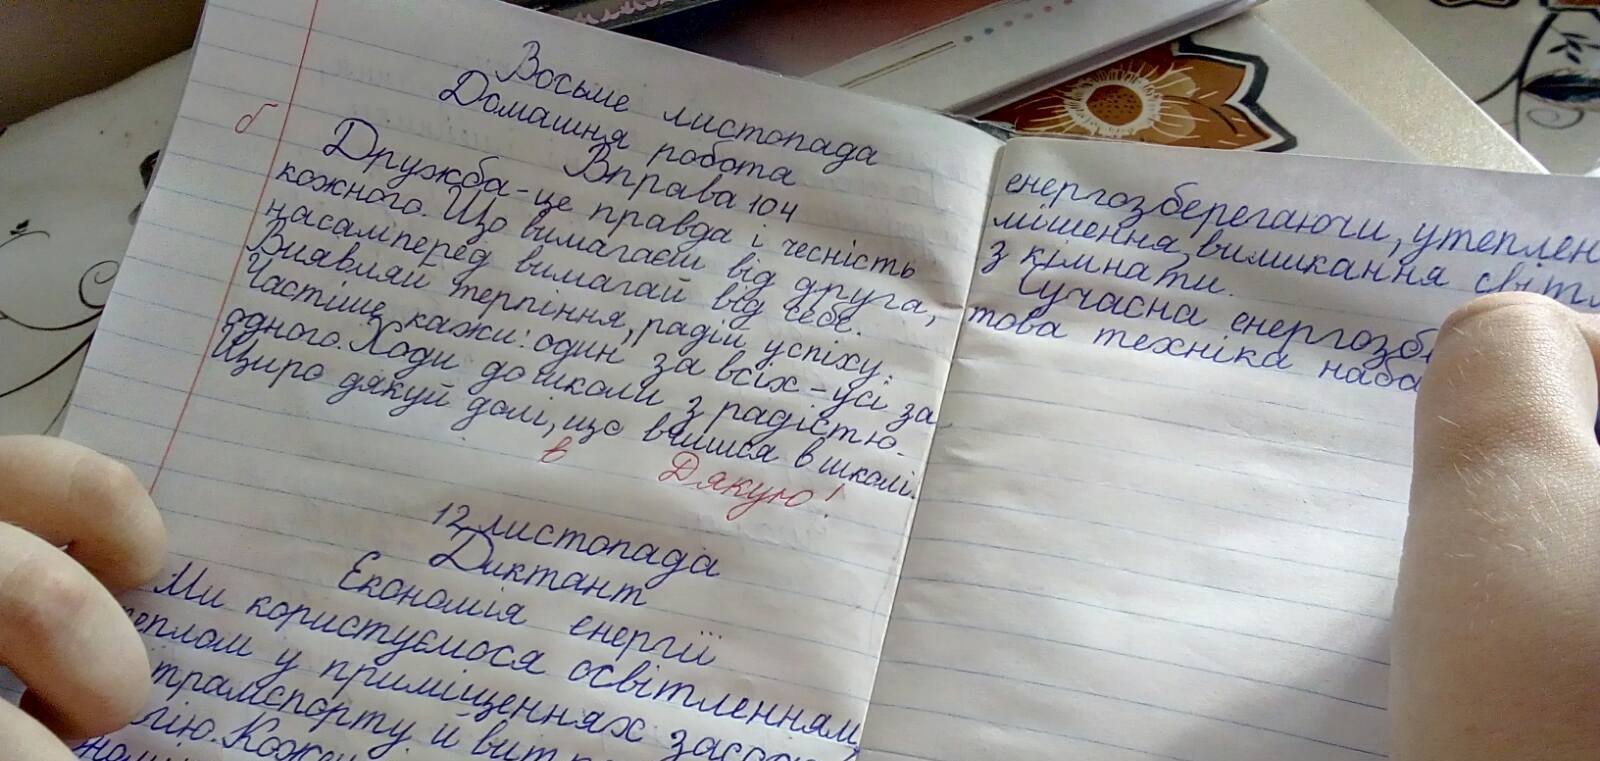 Восьме листопада
Домашня робота
Вправа 104
б
Дружба - це правда і чесність
кожного. Що вимагаєш від друга,
насамперед вимагай від себе.
Виявляй терпіння, радій успіху.
Частіше кажи: один за всіх - усі за
одного. Ходи до школи з радістю.
Щиро дякуй долі, що вчишся в школі.
в Дякую!
12 листопада
Диктант
Економія енергії
Ми користуємося освітленням,
теплом у приміщеннях
транспорту й
лію. Кожен
енергозберегаючи, утеплен
мішення, вимикання світл
з кімнати.
Сучасна енергозбе
това техніка наба